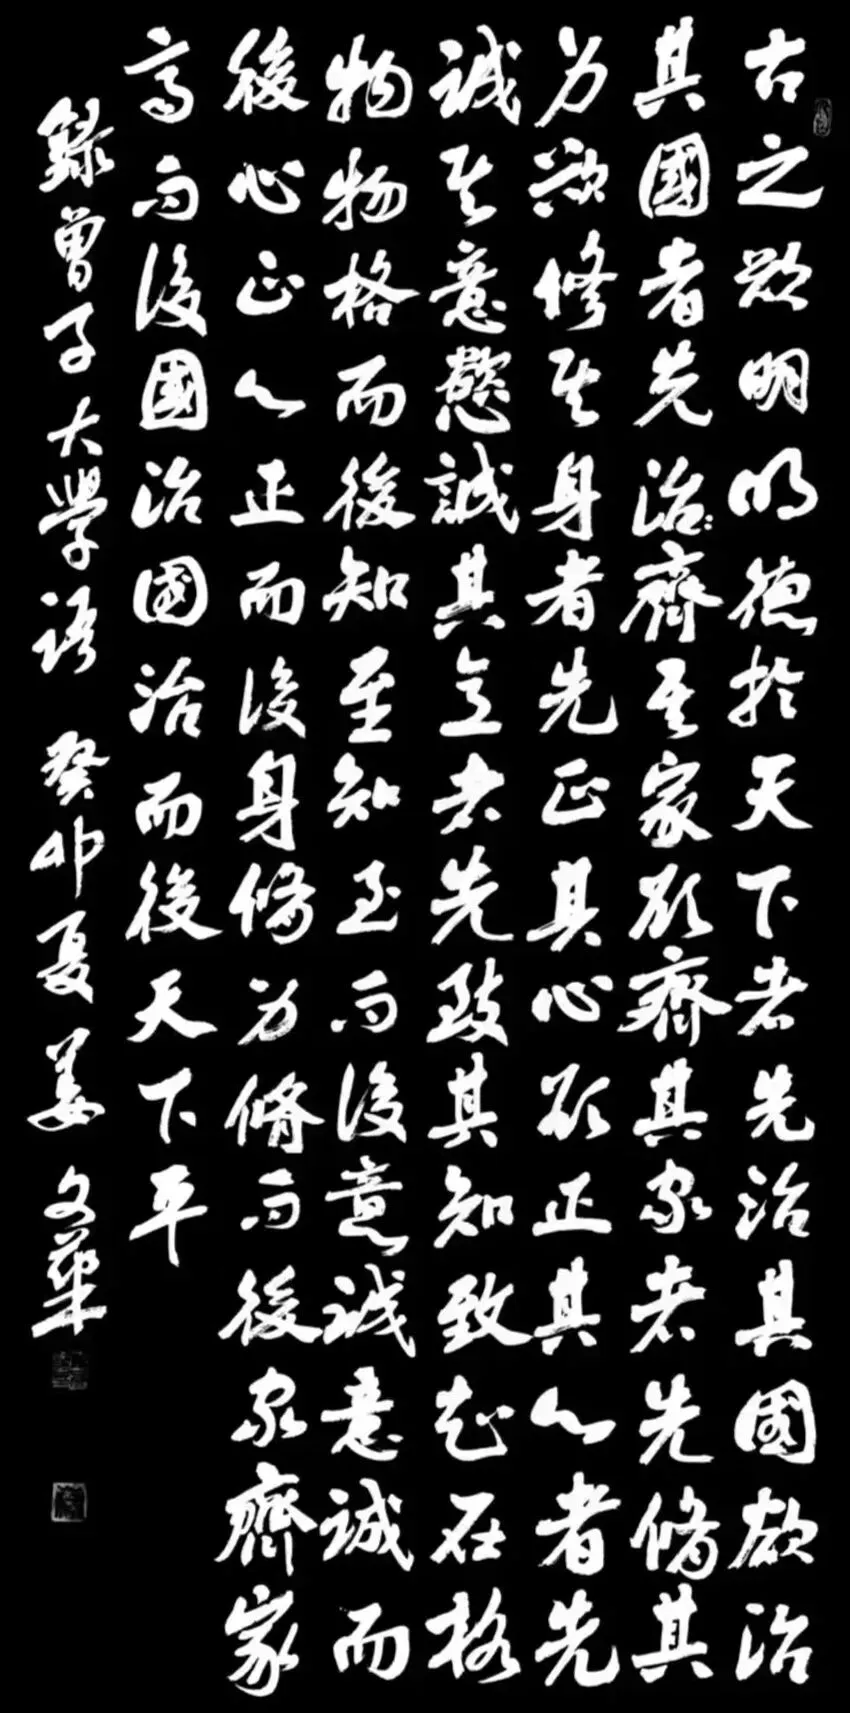 古之欲明明德於天下者先治其國欲治
其國者先治：齊其家欲齊其家者先脩其
身欲修其身者先正其心欲正其心者先
誠其意慾誠其意者先致其知致知在格
物物格而後知至知至而後意誠意誠而
後心正心正而後身修身脩而後家齊家
齊而後國治國治而後天下平
錄曾子大學語 癸卯夏 姜文華